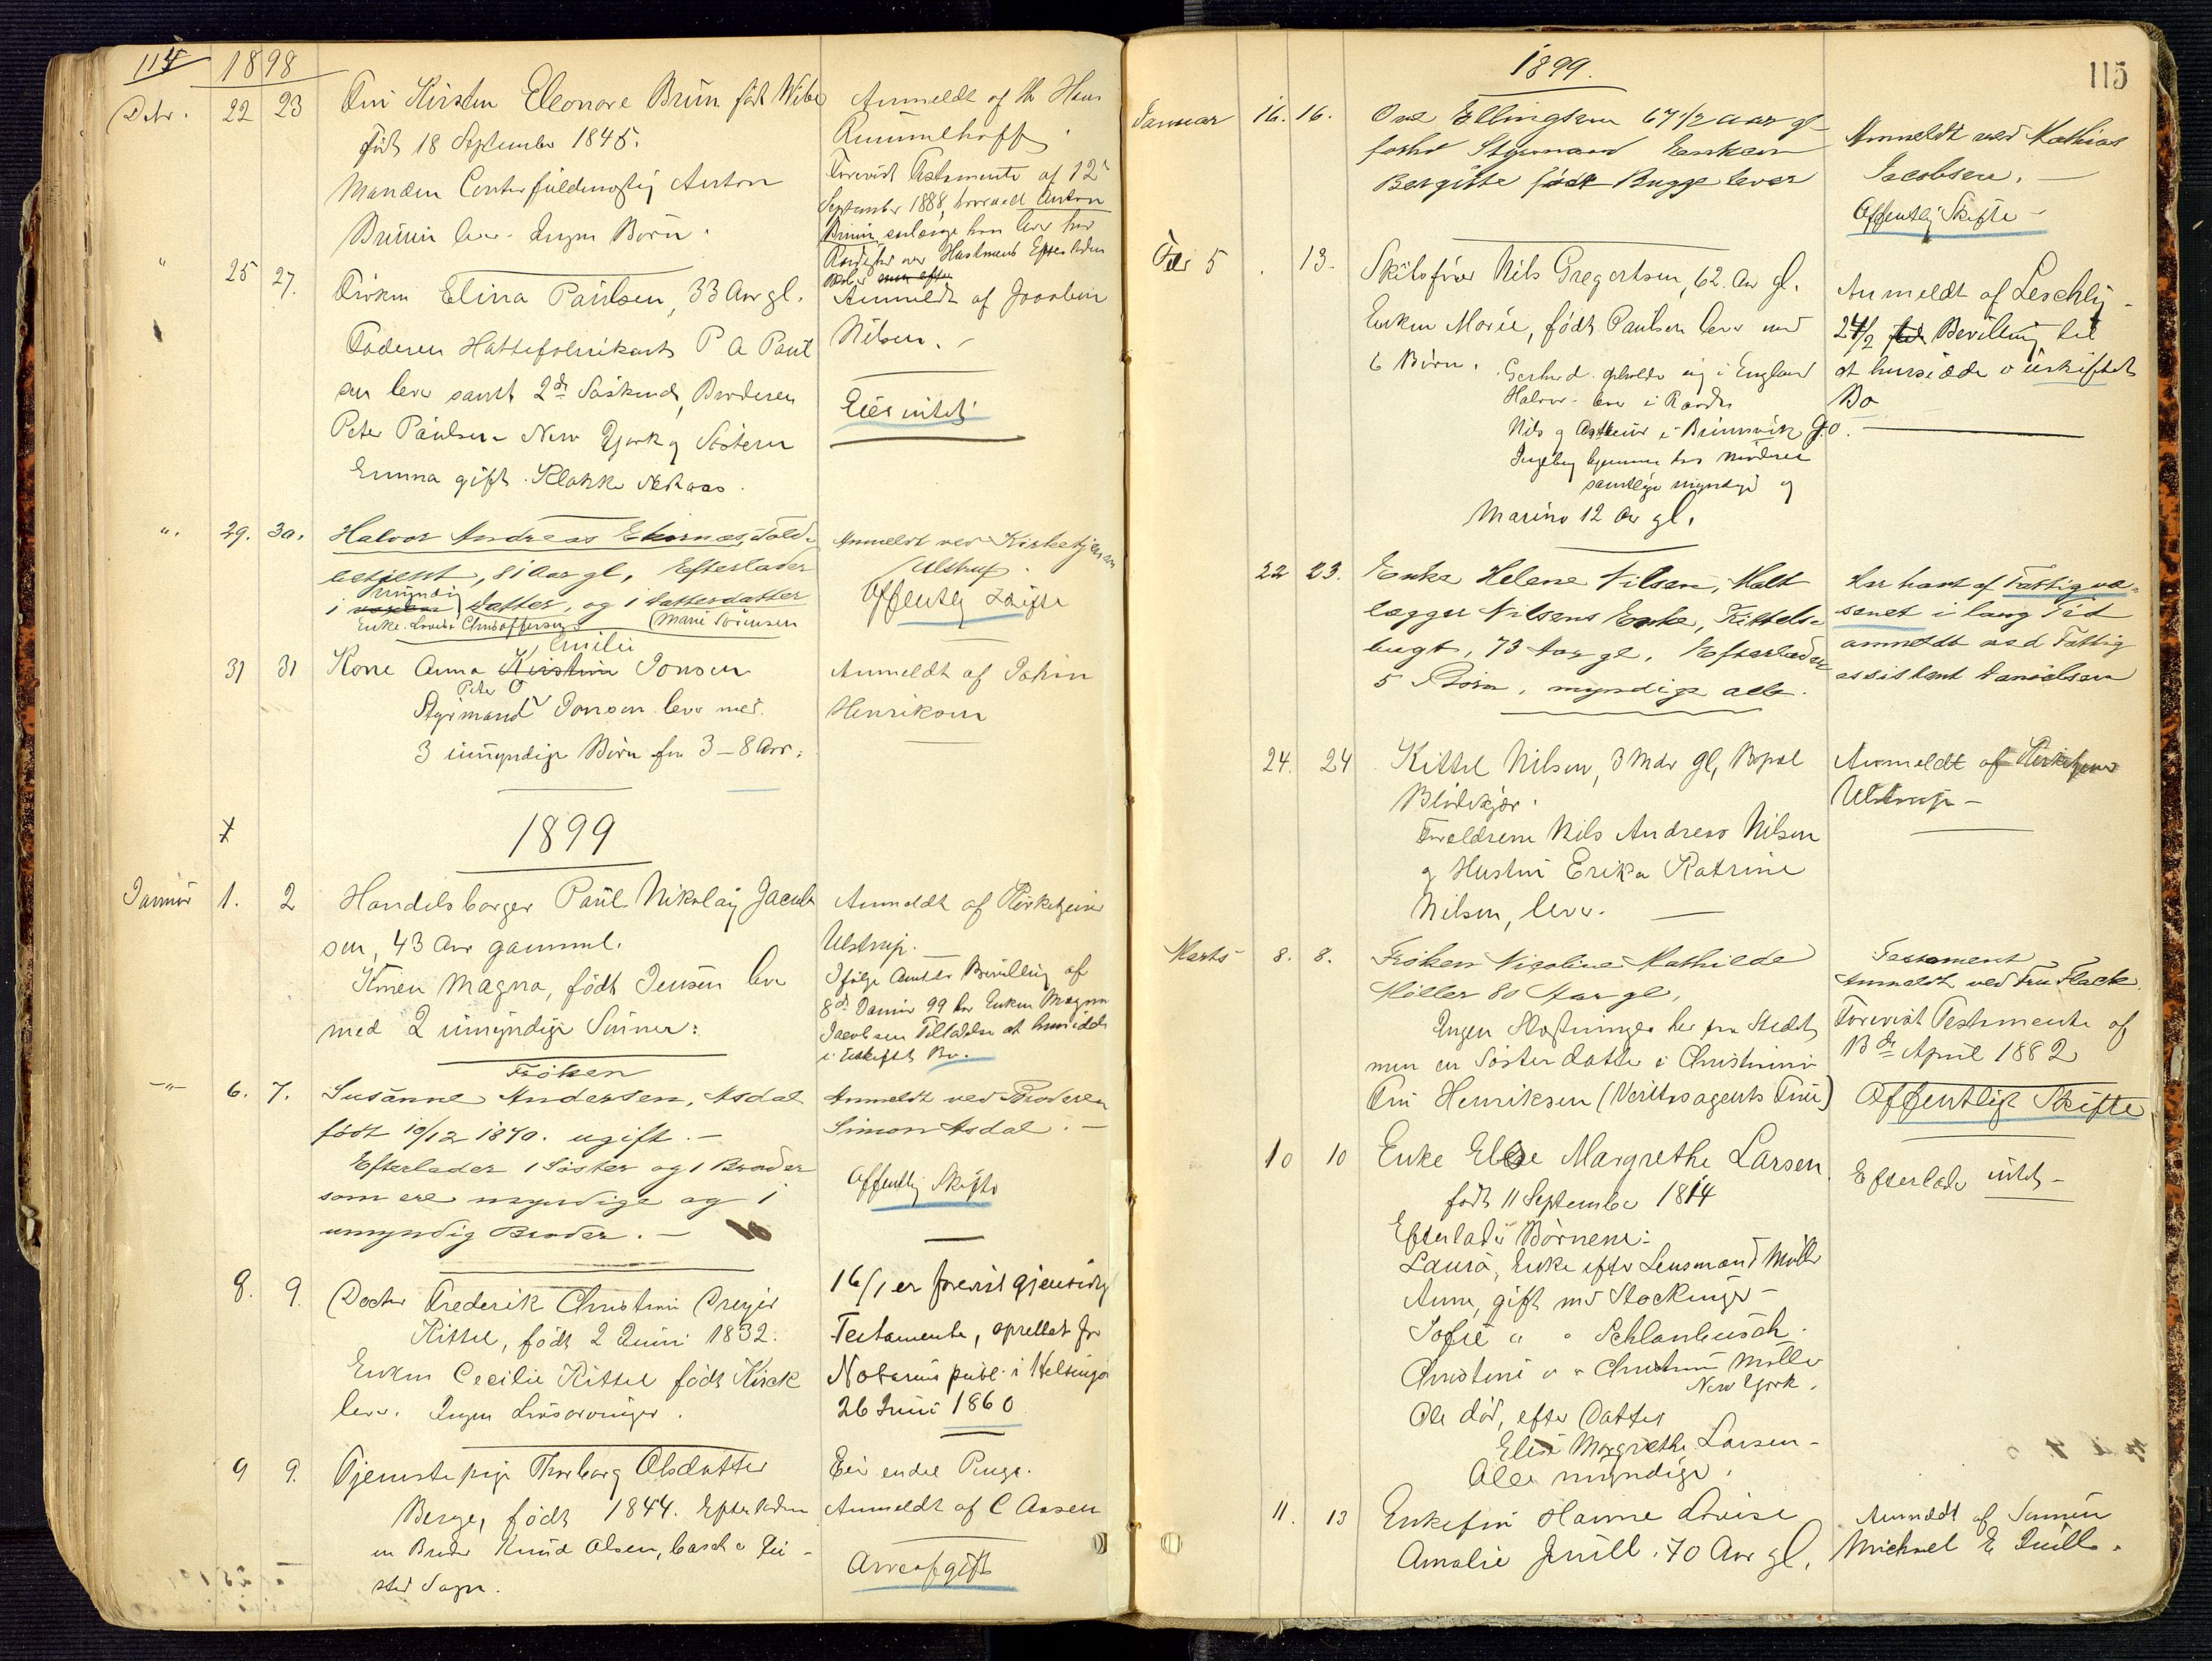 114 1898
Debr. 22 23 Fru Kirsten Eleonore Bruun født Wibe
født 18 September 1845.
Manden Contorfuldmægtig Anton
Bruun lever. Ingen Børn.
Anmeldt af Hr Hans
Rummelhoff.
Forevist Testamente af 12te
September 1888, hvorved Anton
Bruun, saalænge han lever har
Raadighed over Hustruens Efterladen
" 25 27. Frøken Elina Paulsen, 33 Aar gl.
Faderen Hattefabrikant P A Paul
sen lever samt 2de Søskende, Broderen
Peter Paulsen New York og Søsteren
Emma gift Klokker
Anmeldt af Jacobin
Nilsen.
Eier intet
". 29. 30. Halvor Andreas Ekornæs, Told-
betjent, 81 Aar gl, Efterlader
1 voxen myndig Datter, og 1 Datterdatter
Enke Lovise Christoffersen (Marie Sørensen
Anmeldt ved Kirketjeneren
Ulstrup.
Offentlig Skifte
31 31 Kone Anna Kirstine Emilie Jonsen
Styrmand Peter O Jonsen lever med
3 umyndige Børn fra 3-8 Aar.
Anmeldt af Johan
Henriksen
1899
Januar 1. 2 Handelsborger Paul Nikolay Jacob
sen, 43 Aar gammel.
Konen Magna, født Jensen lever
med 2 umyndige Sønner.
Anmeldt af Kirketjener
Ulstrup.
Ifølge Amtets Bevilling af
8de Januar 99 har Enken Magna
Jacobsen Tilladelse at hensidde
i uskiftet Bo.
-"- 6. 7. Frøken
Susanne Andersen, Asdal
født 10/12 1870. ugift.-
Efterlader 1 Søster og 1 Broder
som ere myndige og 1
umyndig Broder.-
Anmeldt ved Broderen
Simon Asdal.-
Offentlig Skifte
8. 9. Doctor Frederik Christian Dreyer
Kittel, født 2 Juni 1832.
Enken Cecilie Kittel født Kirck
lever. Ingen Livsarvinger.
16/1 er forevist gjensidig
Testamente, oprettet for
Notarius publ. i Helsingør
26 Juni 1860
9 9. Tjenestepige Thorborg Olsdatter
Berge, født 1844. Efterladen
en Broder Knud Olsen,
sted Sogn.
Eier endel Penge.
Anmeldt af C Aasen
Arveafgift
1899. 115
Januar 16. 16. Ove Ellingsen 67 1/2 Aar gl
forhv Styrmand Enken
Bergitte født Bugge lever
Anmeldt ved Mathias
Jacobsen.
Offentlig Skifte-
Febr 5 13. Skibsfører Nils Gregertsen, 62. Aar gl.
Enken Marie, født Paulsen lever med
6 Børn. Gerhard opholder sig i England
Halvor lever i Randers
Nils og Arthur i Brunsvik Go.
Ingeborg hjemme hos Moderen
samtlige myndige og
Marino 12 Aar gl.
Anmeldt af Leschly-
24/2 Bevilling til
at hensidde i uskiftet
Bo
22 23. Enke Helene Nilsen, Malt
lægger Nilsens Enke, Kittels-
bugt, 73 Aar gl. Efterlader
5 Børn, myndige alle.
Har havt af Fattigvæ-
senet i lang Tid
anmeldt ved Fattig
assistent Danielsen
24. 24 Kittel Nilsen, 3 Mdr gl, Bopæl
Blødekjær.
Forældrene Nils Andreas Nilsen
og Hustru Erika Katrine
Nilsen, lever.
Anmeldt af Kirketjener
Ulstrup-
Marts 8. 8. Frøken Nicoline Mathilde
Møller 80 Aar gl,
Ingen Slægtninger her paa Stedet
men en Søsterdatter i Christiania
Fru Henriksen (Veritasagents Frue)
Testament
Anmeldt ved Fru Flack.
Forevist Testamente af
13de April 1882
Offentligt Skifte
10 10 Enke Else Margrethe Larsen.
født 11 September 1814
Efterlader Børnene:
Laura, Enke efter Lensmand Møller
Anne, gift med Stockinger-
Sofie " " Schlanbusch.
Christine " " Christian Møller
New York.
Ole død, efter Datter
Elise Margrethe Larsen-
Alle myndige.
Efterlader intet-
11. 13 Enkefru Hanne Lovise
Amalie Juell. 70 Aar gl.
Anmeldt af Sønnen
Michael E Juell.